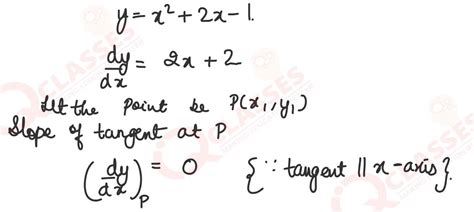 y = x² + 2x - 1.
dy/dx = 2x + 2
Let the point be P(x₁, y₁)
Slope of tangent at P
(dy/dx)_P = 0 {∵ tangent || x-axis}.